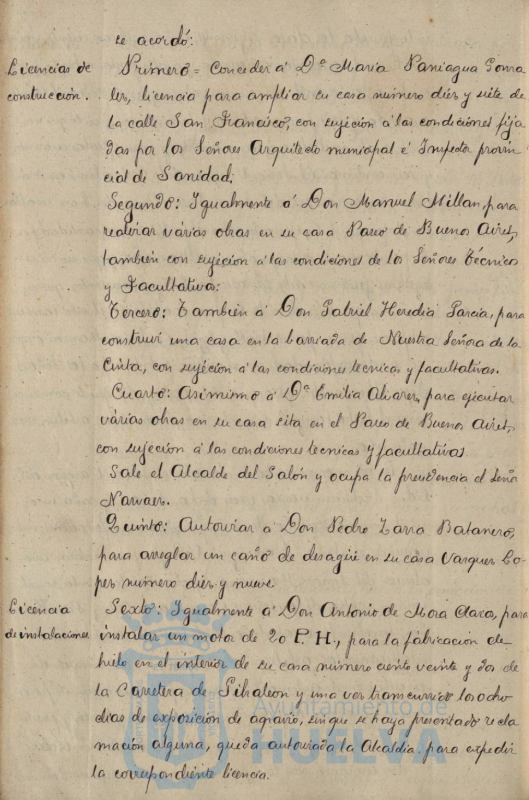 se acordó:
Licencias de
construcción.
Primero = Conceder á Dª María Paniagua Gonza
lez, licencia para ampliar su casa número diez y siete de
la calle San Francisco, con sujeción á las condiciones fija
das por los Señores Arquitecto municipal é Inspector provin
cial de Sanidad.
Segundo: Igualmente á Don Manuel Millan, para
realizar várias obras en su casa Paseo de Buenos Aires,
también con sujeción á las condiciones de los Señores Técnicos
y Facultativos:
Tercero: También á Don Gabriel Heredia García, para
construir una casa en la barriada de Nuestra Señora de la
Cinta, con sujéción á las condiciones tecnicas y facultativas.
Cuarto: Asimismo á Dª Emilia Alvarez, para ejecutar
várias obras en su casa sita en el Paseo de Buenos Aires,
con sujeción á las condiciones tecnicas y facultativas
Sale el Alcalde del Salón y ocupa la presidencia el Señor
Narvaez.
Quinto: Autorizar a Don Pedro Zarra Batanero,
para arreglar un caño de desagüe en su casa Vazquez Lo-
pez número diez y nueve
Licencia
de instalaciones
Sexto: Igualmente á Don Antonio de Mora Claro, para
instalar un motor de 20 P.H., para la fábricación de
hielo en el interior de su casa número ciento veinte y dos de
la Carretera de Gibraleon y una vez transcurridos los ocho
dias de exposición de agravio, sin que se haya presentado recla
mación alguna, queda autorizada la Alcaldia para expedir
la correspondiente licencia.
Ayuntamiento de
HUELVA